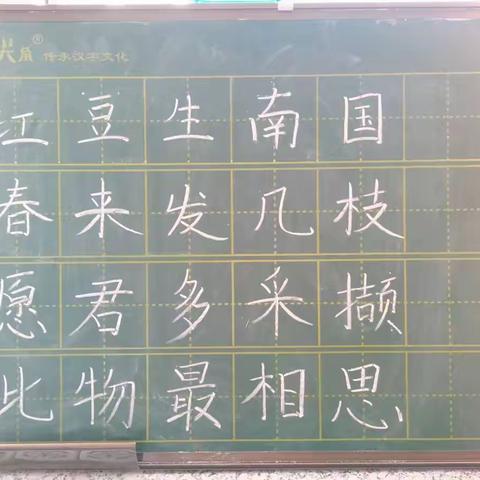 尖角® 传承汉字文化
红豆生南国
春来发几枝
愿君多采撷
此物最相思